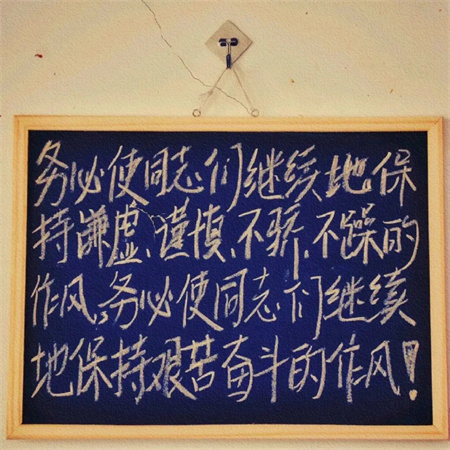 务必使同志们继续、地保
持谦虚、谨慎、不骄、不躁的
作风,务必使同志们继续
地保持艰苦奋斗的作风!